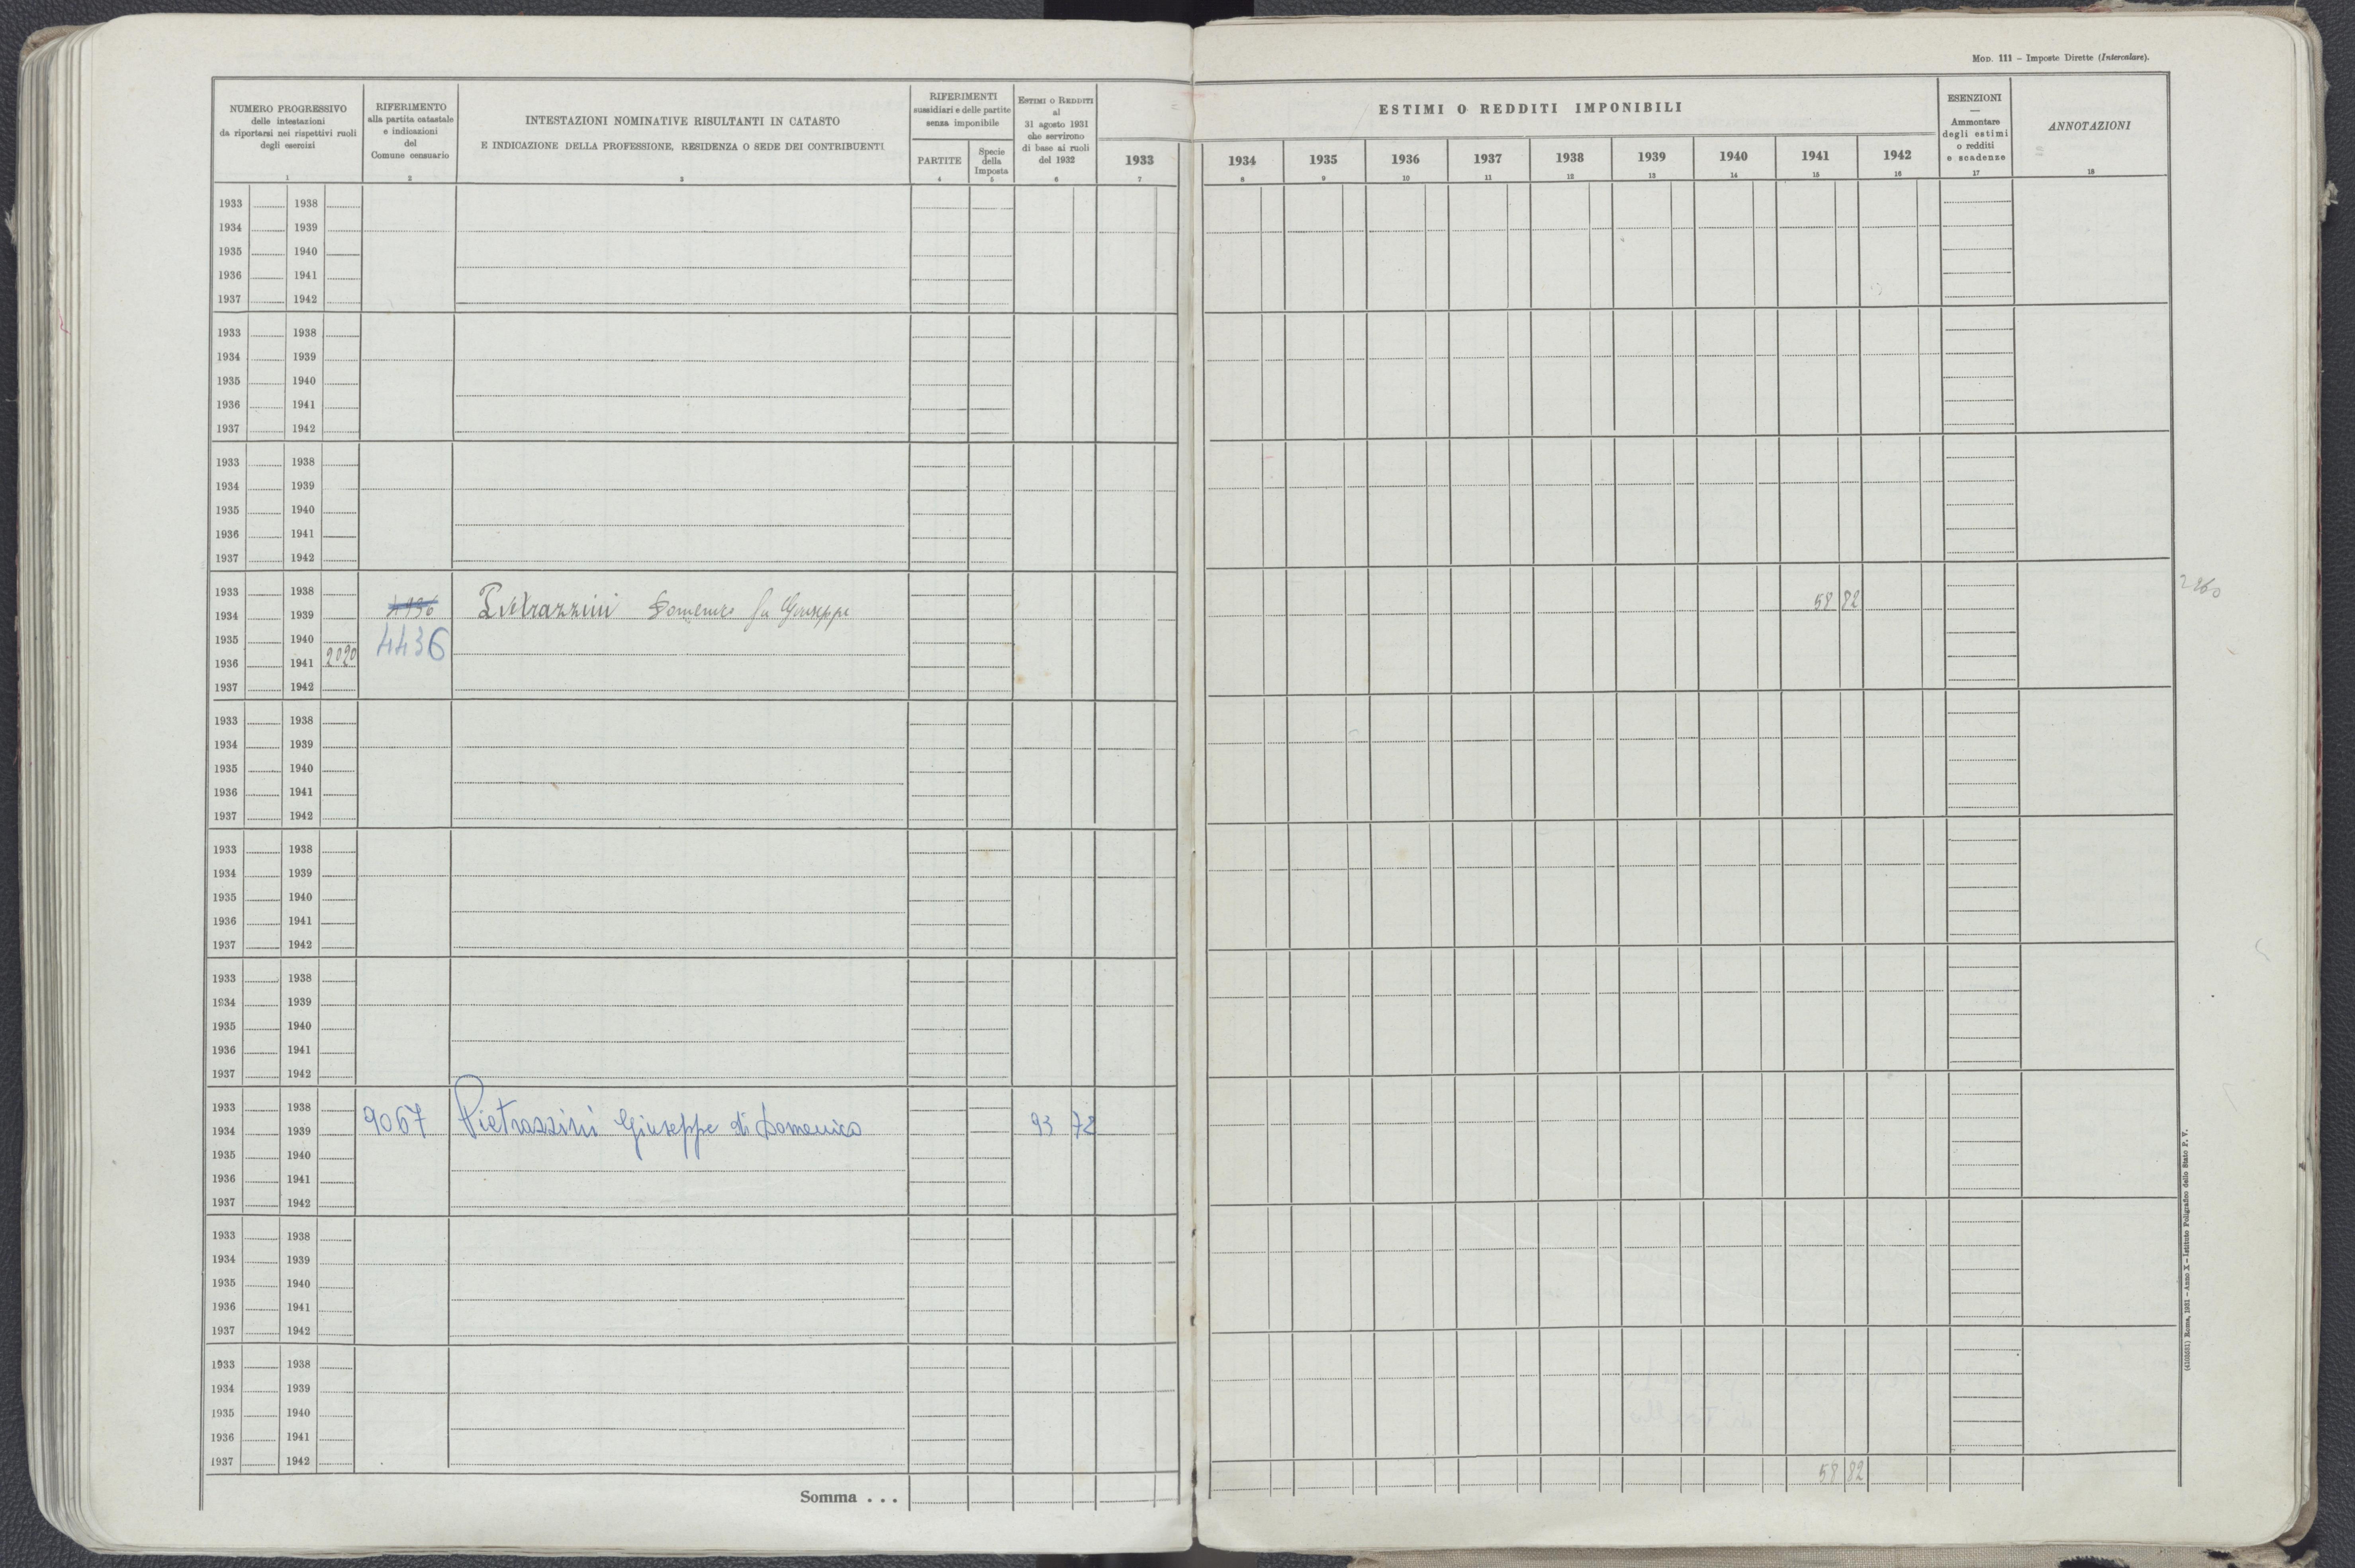 MOD. 111 – Imposte Dirette (Intercalare).
NUMERO PROGRESSIVO
delle intestazioni
da riportarsi nei rispettivi ruoli
degli esercizi
1
RIFERIMENTO
alla partita catastale
e indicazioni
del
Comune censuario
2
INTESTAZIONI NOMINATIVE RISULTANTI IN CATASTO
E INDICAZIONE DELLA PROFESSIONE, RESIDENZA O SEDE DEI CONTRIBUENTI
3
RIFERIMENTI
sussidiari e delle partite
senza imponibile
PARTITE
4
Specie
della
Imposta
5
ESTIMI O REDDITI
al
31 agosto 1931
che servirono
di base ai ruoli
del 1932
6
ESTIMI O REDDITI IMPONIBILI
1933 1934 1935 1936 1937 1938 1939 1940 1941 1942
7 8 9 10 11 12 13 14 15 16
ESENZIONI
—
Ammontare
degli estimi
o redditi
e scadenze
17
ANNOTAZIONI
18
1933 1938
1934 1939
1935 1940
1936 1941
1937 1942
1933 1938
1934 1939
1935 1940
1936 1941
1937 1942
1933 1938
1934 1939
1935 1940
1936 1941
1937 1942
1933 1938
1934 1939 Pietrazzini Domenico fu Giuseppe 58 82
1935 1940 4436
1936 1941 2020
1937 1942
1933 1938
1934 1939
1935 1940
1936 1941
1937 1942
1933 1938
1934 1939
1935 1940
1936 1941
1937 1942
1933 1938
1934 1939
1935 1940
1936 1941
1937 1942
1933 1938
1934 1939 9067 Pietrazzini Giuseppe di Domenico 93 72
1935 1940
1936 1941
1937 1942
1933 1938
1934 1939
1935 1940
1936 1941
1937 1942
1933 1938
1934 1939
1935 1940
1936 1941
1937 1942
58 82
Somma . . .
(4103051) Roma, 1931 – Anno X – Istituto Poligrafico dello Stato P. V.